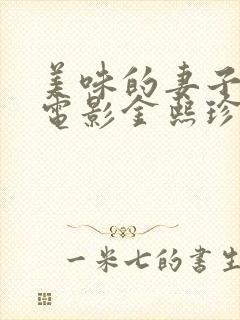 美味的妻子
電影金熙珍
一米七的書生